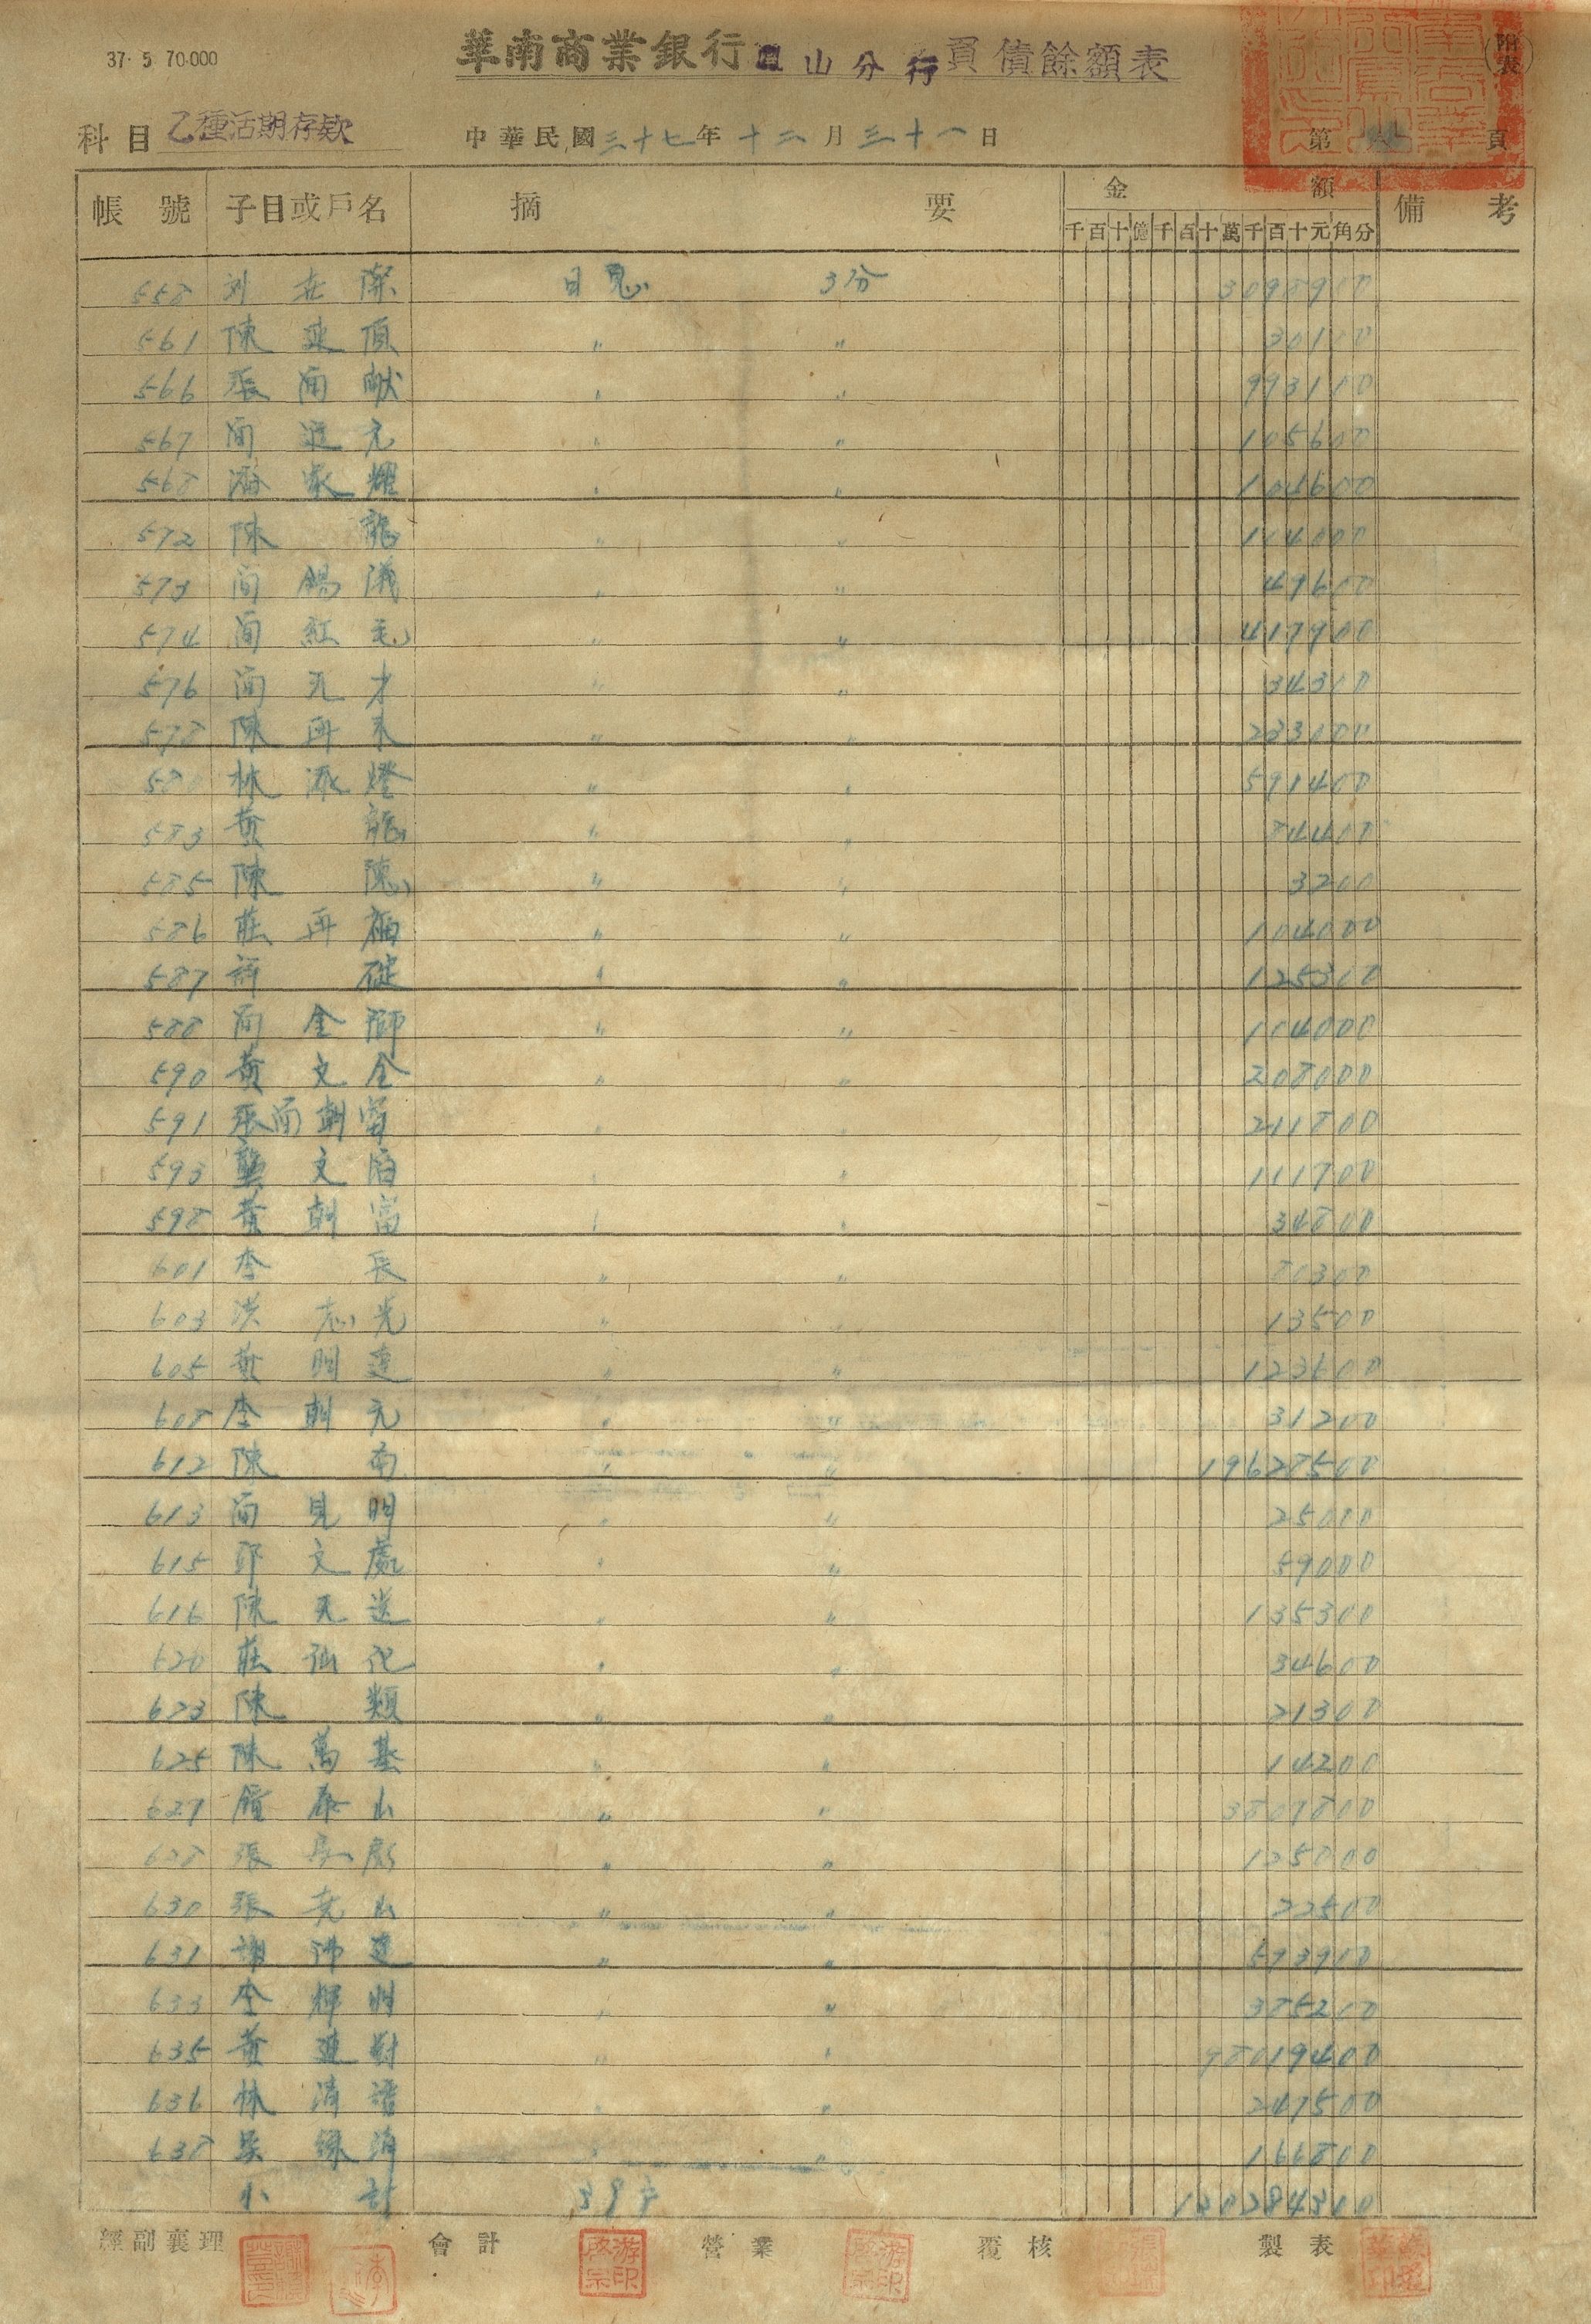 37·5 70.000
華南商業銀行鳳山分行負債餘額表
附表
科目 乙種活期存款 中華民國三十七年十二月三十一日 第 頁
帳號 子目或戶名 摘要 金額 備考
千百十億千百十萬千百十元角分
558 日息 3分 3098900
561 陳 〃 〃 30100
566 張簡献 〃 〃 993100
567 簡 元 〃 〃 105600
568 潘家耀 〃 〃 104600
572 陳龍 〃 〃 104000
573 簡錫儀 〃 〃 49600
574 簡紅毛 〃 〃 417900
576 簡天才 〃 〃 34300
578 陳再來 〃 〃 233000
580 林添燈 〃 〃 591400
583 黄龍 〃 〃 84400
585 陳 〃 〃 3200
586 莊再福 〃 〃 104000
587 許 〃 〃 125300
588 簡金獅 〃 〃 104000
590 黄文全 〃 〃 208000
591 張簡朝富 〃 〃 211800
593 龔文 〃 〃 111700
598 黄朝富 〃 〃 34800
601 李長 〃 〃 80300
603 洪志光 〃 〃 13500
605 黄明連 〃 〃 123600
608 李朝元 〃 〃 31200
612 陳南 〃 〃 19628500
613 簡見明 〃 〃 25000
615 邱文處 〃 〃 59000
616 陳天送 〃 〃 135300
620 莊仙化 〃 〃 34600
623 陳類 〃 〃 21300
625 陳萬基 〃 〃 14200
627 泰山 〃 〃 3809800
628 張 〃 〃 125000
630 張 山 〃 〃 22500
631 謝沛連 〃 〃 573900
633 李輝明 〃 〃 385200
635 黄連對 〃 〃 98019400
636 林清 〃 〃 247500
638 吳 海 〃 〃 166800
小計 39戶 130284300
經副襄理 會計 營業 覆核 製表